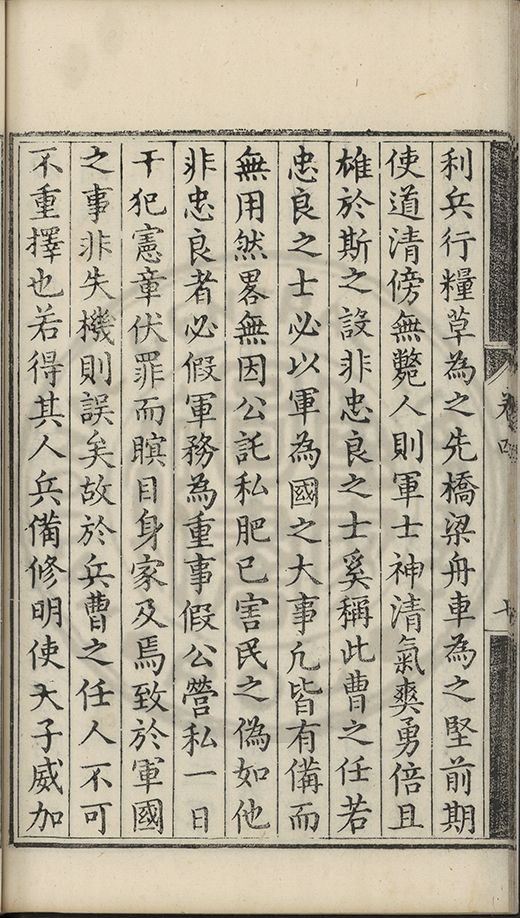 利兵行糧草為之先橋梁舟車為之堅前期
使道清傍無斃人則軍士神清氣爽勇倍且
雄於斯之設非忠良之士奚稱此曹之任若
忠良之士必以軍為國之大事凢皆有備而
無用然畧無因公託私肥已害民之偽如他
非忠良者必假軍務為重事假公營私一日
干犯憲章伏罪而瞑目身家及焉致於軍國
之事非失機則誤矣故於兵曹之任人不可
不重擇也若得其人兵備修明使天子威加